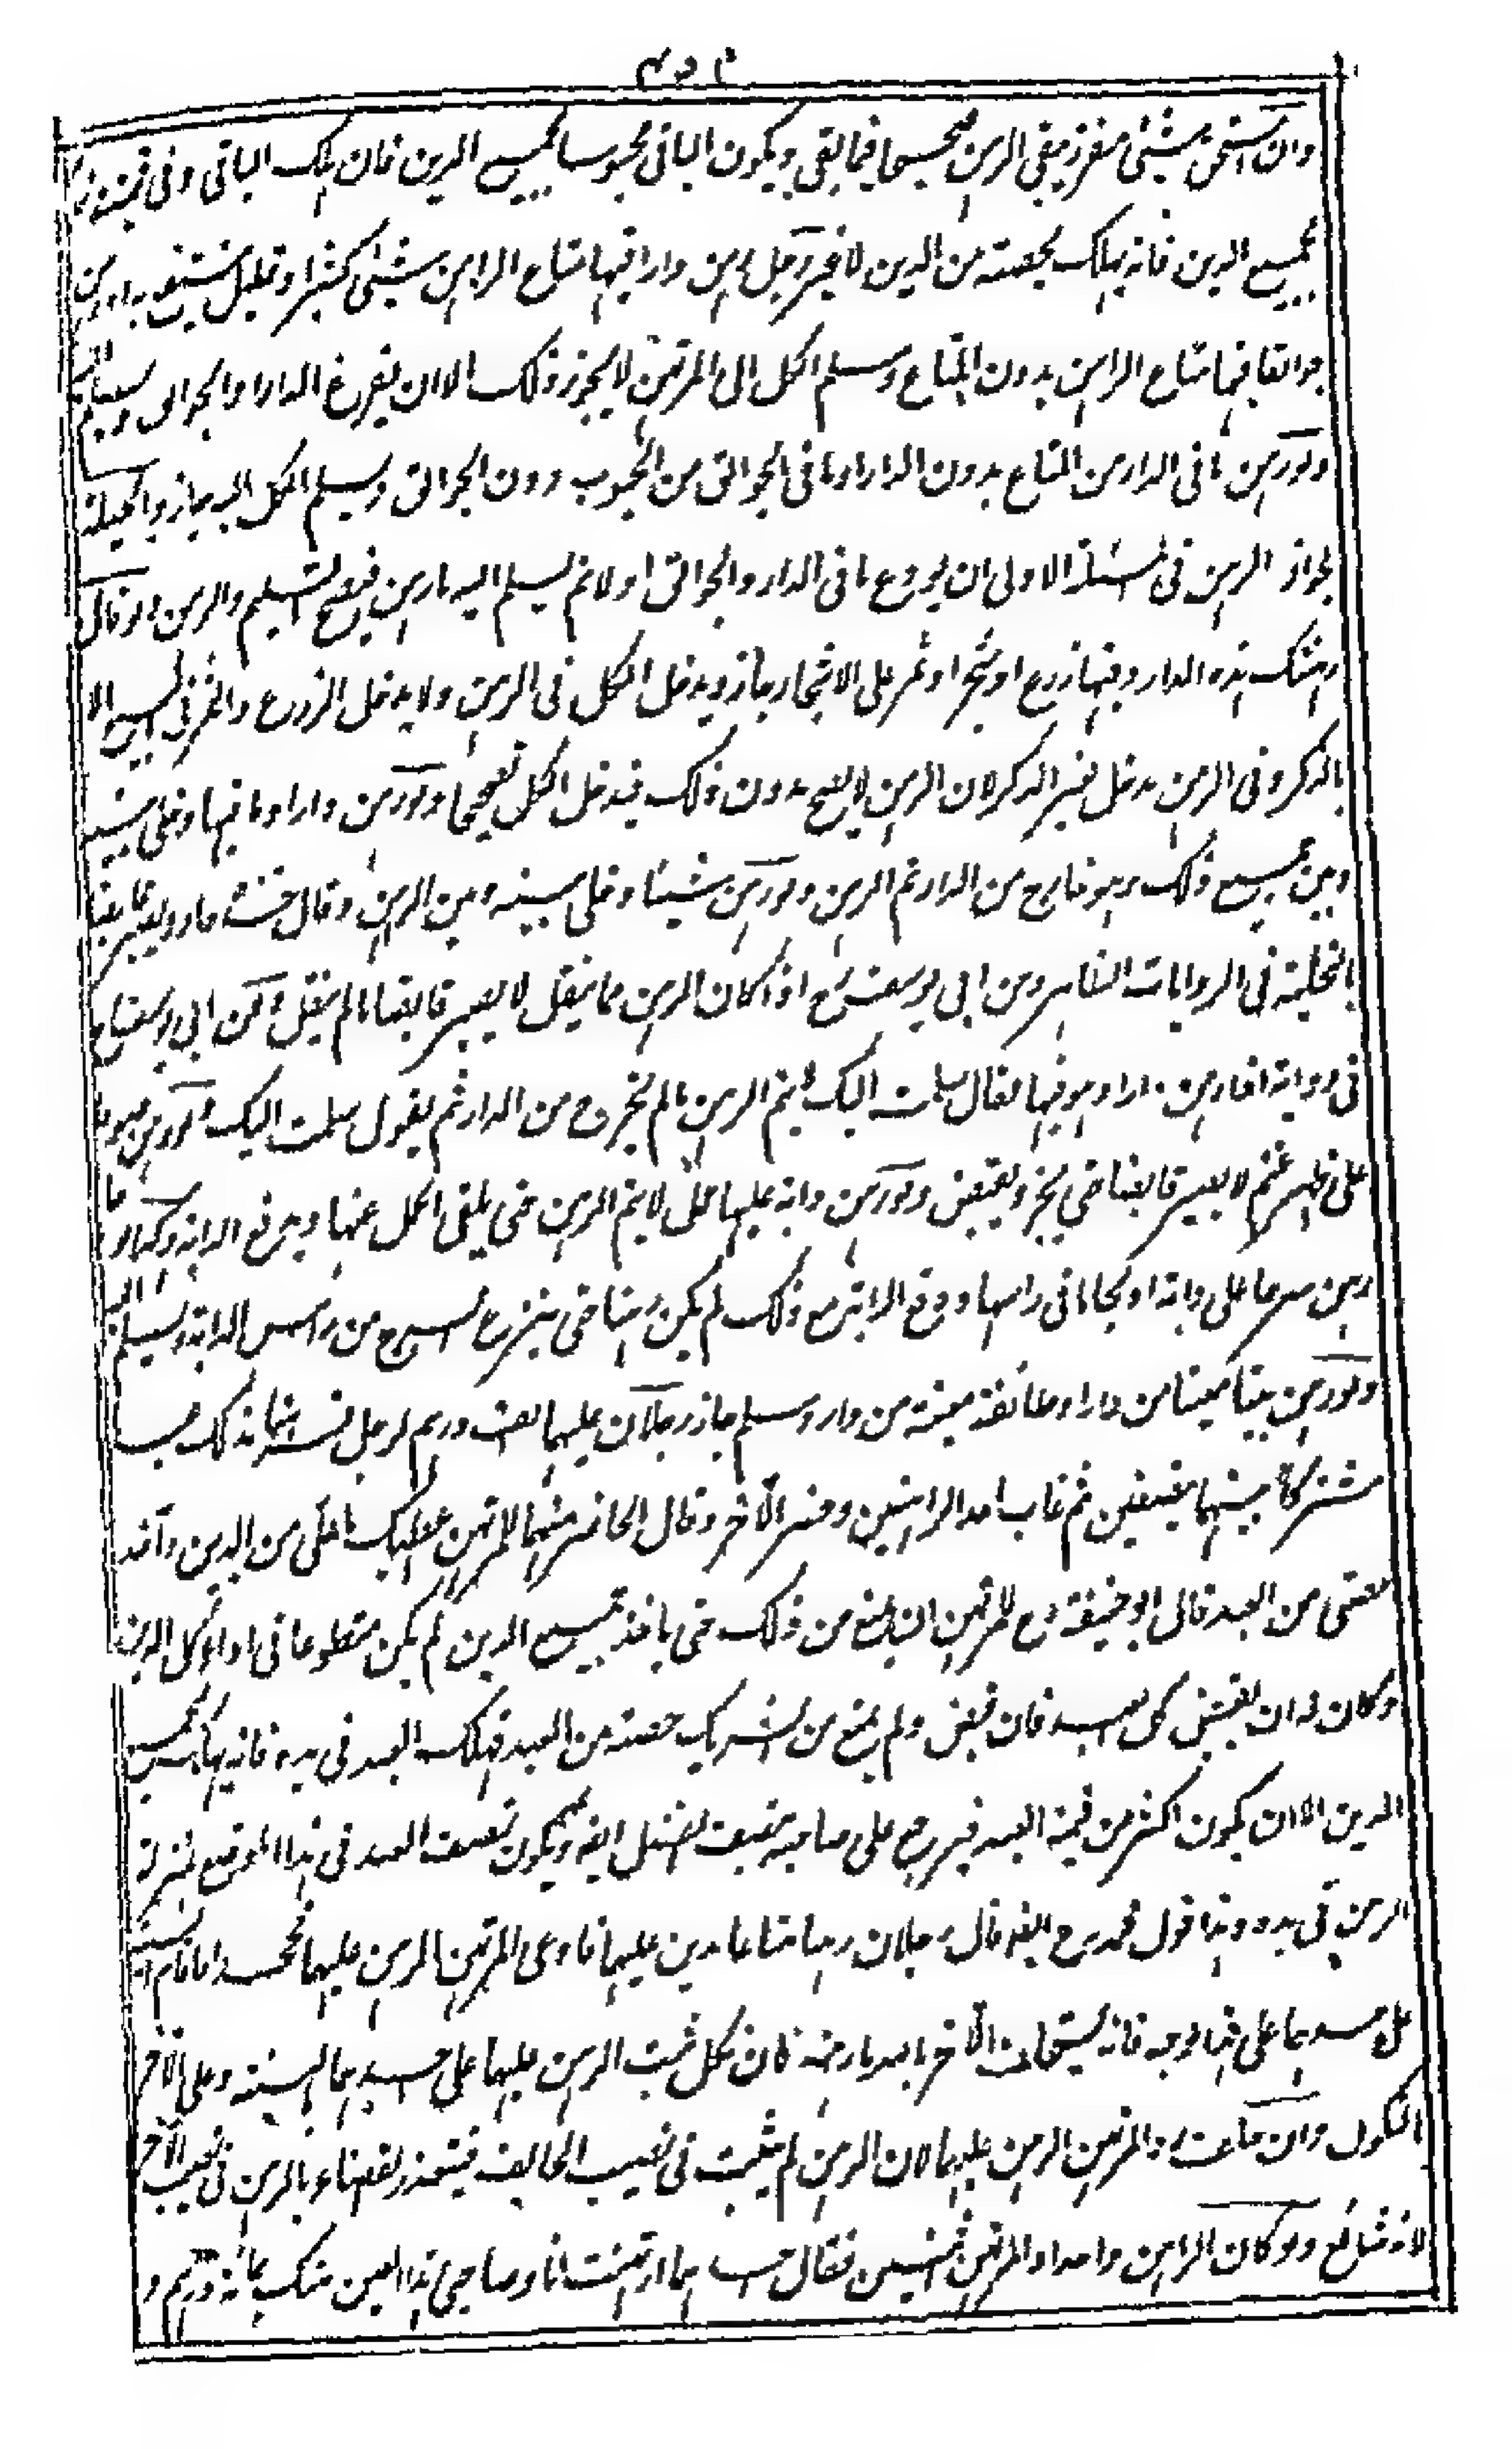 وان استحق شيئ مفرز يبقى الرهن صحيحا فيما بقي ويكون الباقي محبوسا بجميع الدين فان هلك الباقي وفي قيمته وفاء
بجميع الدين فانه يهلك بحصته من الدين لا غير رجل رهن دارا فيها متاع الراهن شيئ كثير او قليل ينتفع به او رهن
جوالقا فيها متاع الراهن بدون المتاع وسلم الكل الى المرتهن لا يجوز ذلك الا ان يفرغ الدار او الجوالق ويسلم اليه
ولو رهن ما في الدار من المتاع بدون الدار او ما في الجوالق من الحبوب دون الجوالق وسلم الكل اليه جاز والحيلة
لجواز الرهن في المسئلة الاولى ان يودع ما في الدار والجوالق اولا ثم يسلم اليه ما رهن فيصح التسليم والرهن ولو قال
رهنتك هذه الدار وفيها زرع او شجر او ثمر على الاشجار جاز ويدخل الكل في الرهن ولا يدخل الزرع والثمر في البيع الا
بالذكر وفي الرهن يدخل بغير الذكر لان الرهن لا يصح بدون ذلك فيدخل الكل تصحيحا ولو رهن دارا وما فيها وخلى بينه
وبين جميع ذلك وهو خارج من الدار تم الرهن ولو رهن شيئا وخلى بينه وبين الرهن وقال خذه جاز ويصير قابضا
بالتخلية في الروايات الظاهر وعن ابي يوسف رح اذا كان الرهن مما ينقل لا يصير قابضا ما لم ينقل وعن ابي يوسف رح
في رواية اذا رهن دارا وهو فيها فقال سلمت اليك لا يتم الرهن ما لم يخرج من الدار ثم يقول سلمت اليك ولو رهن صوفا
على ظهر غنم لا يصير قابضا حتى يجز ويقبض ولو رهن دابة عليها حمل لا يتم الرهن حتى يلقى الحمل عنها ويدفع الدابة وكذا لو
رهن سرجا على دابة او لجاما في راسها ودفع الدابة مع ذلك لم يكن رهنا حتى ينزع السرج من راس الدابة ويسلم اليه
ولو رهن بيتا معينا من دار او طائفة معينة من دار وسلم جاز رجلان عليهما الف درهم لرجل فرهناه بذلك عبدا
مشتركا بينهما نصفين ثم غاب احد الراهنين وحضر الآخر وقال الحاضر منهما للمرتهن اعطيك ما علي من الدين وآخذ
حصتي من العبد قال ابو حنيفة رح للمرتهن ان يمنع من ذلك حتى ياخذ جميع الدين لم يكن متطوعا في اداء كل الدين
وكان له ان يقبض كل العبد فان قبض ولم يمنع من الشريك حصته من العبد فهلك العبد في يده فانه يهلك
الدين الا ان يكون اكثر من قيمة العبد فيرجع على صاحبه بنصف الفضل ايضا ويكون نصف العبد في هذا الموضع بمنزلة
الرهن في يده وهذا قول محمد رح ايضا قال رجلان رهنا متاعا بدين عليهما فادعى المرتهن الرهن عليهما فجحدا فاقام البينة
على احدهما على هذا الوجه فانه يستحلف الآخر بالله ما رهنه فان نكل ثبت الرهن عليهما على احدهما بالبينة وعلى الآخر
بالنكول وان حلف رد المرتهن الرهن عليهما لان الرهن لم يثبت في نصيب الحالف فيتعذر القضاء بالرهن في نصيب الآخر
لانه شائع ولو كان الراهن واحدا والمرتهن اثنين فقال احدهما ارتهنت انا وصاحبي هذا العين منك بمائة درهم و